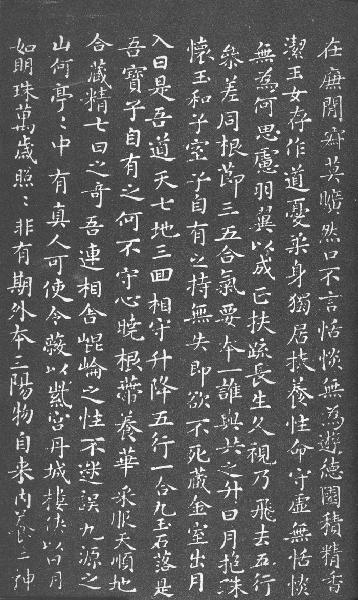 在廡閒寂莫曠然口不言恬惔無為遊德園積精香
潔玉女存作道憂柔身獨居扶養性命守虛無恬惔
無為何思慮羽翼以成正扶疏長生久視乃飛去五行
參差同根節三五合氣要本一誰與共之升日月抱珠
懷玉和子室子自有之持無失即欲不死藏金室出月
入日是吾道天七地三回相守升降五行一合九玉石落是
吾寶子自有之何不守心曉根蔕養華采服天順地
合藏精七日之奇吾連相舍崐崘之性不迷誤九源之
山何亭〻中有真人可使令蔽以紫宮丹城樓俠以日月
如明珠萬歲照〻非有期外本三陽物自来內養三神